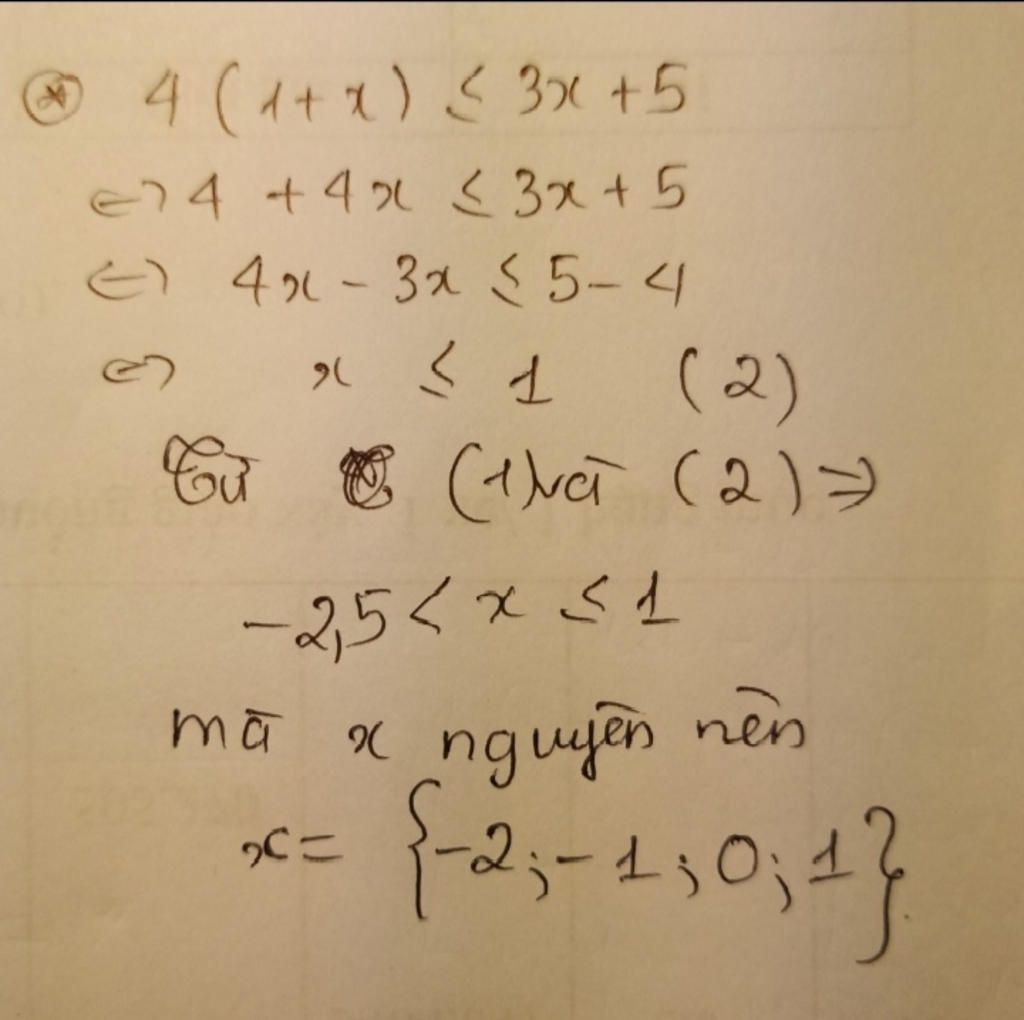 ⊛ 4 (1 + x) ≤ 3x + 5
⇔ 4 + 4x ≤ 3x + 5
⇔ 4x - 3x ≤ 5 - 4
⇔ x ≤ 1 (2)
Từ (1) và (2) ⇒
-2,5 < x ≤ 1
mà x nguyên nên
x = {-2; -1; 0; 1}